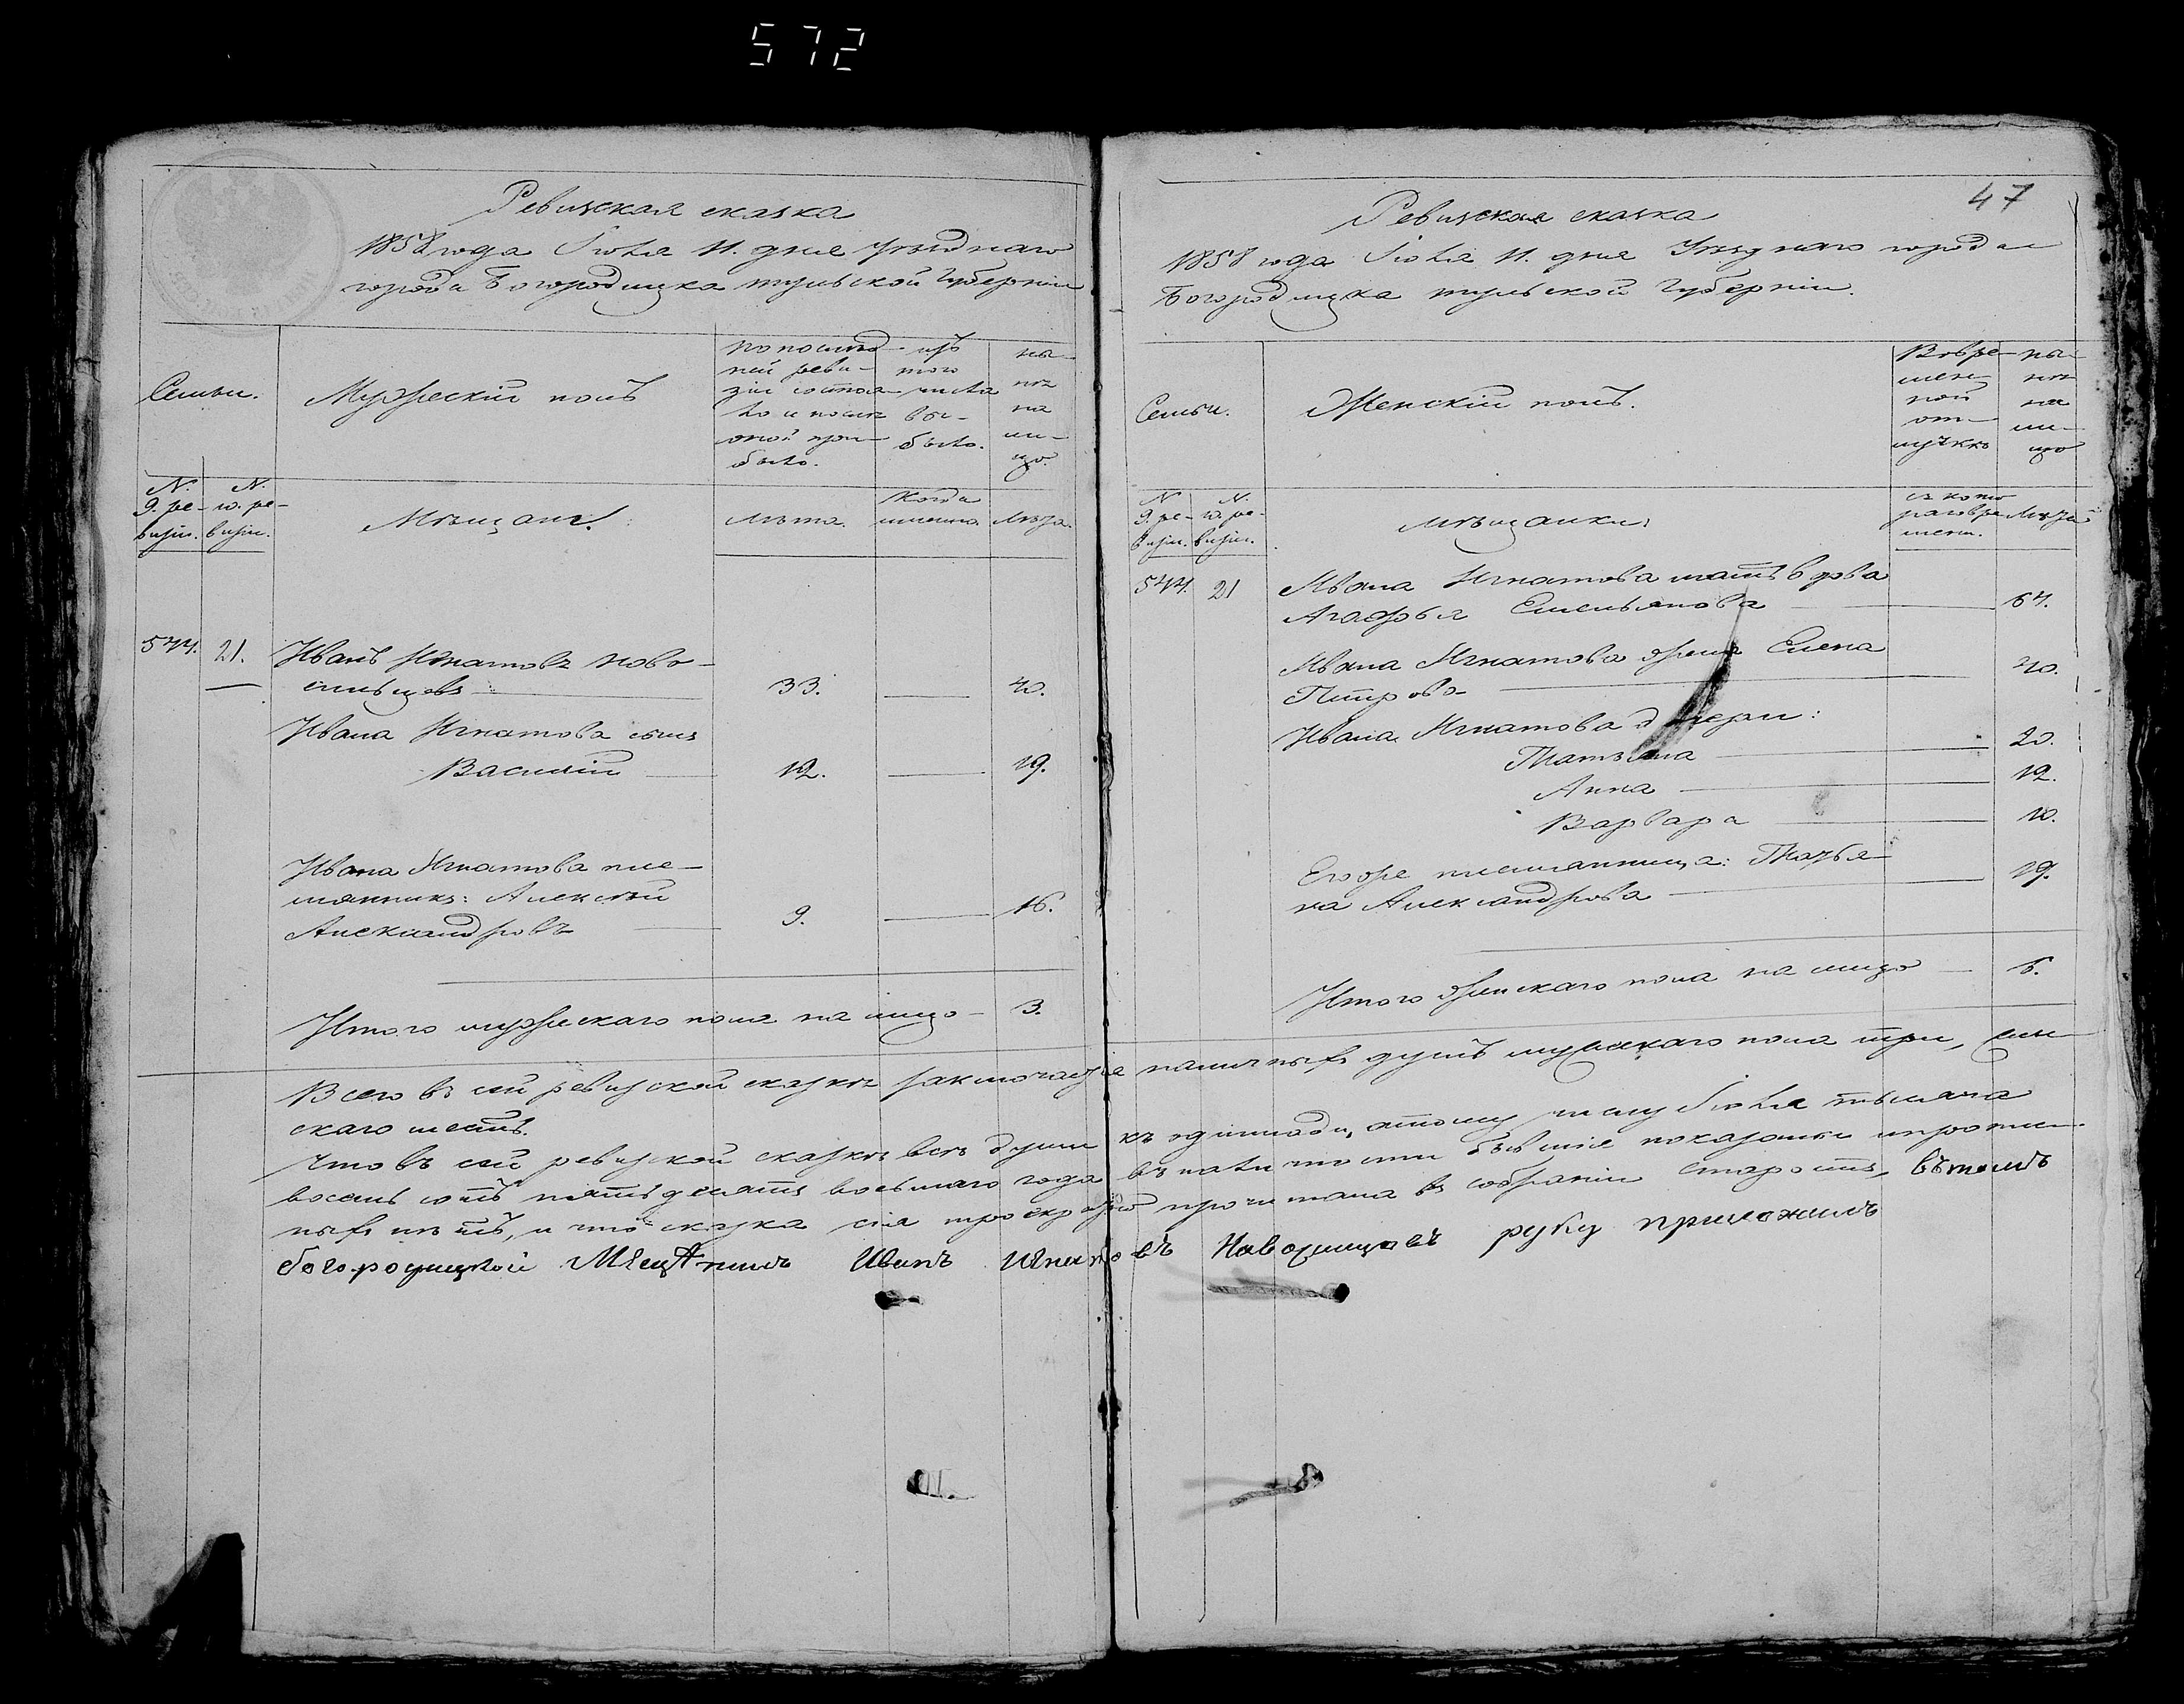 572
Ревизская сказка
1858 года Іюля 11. дня уѣзднаго
города Богородицка тульской Губерніи
Семьи.
Мужескій полъ
по послѣд-
ней реви-
зіи состоя-
ло и послѣ
оной при-
было.
изъ
того
числа
вы-
было.
ны-
нѣ
на
ли-
цо.
N.
9. ре-
визіи.
N.
10. ре-
визіи.
Мѣщане
лѣта.
когда
именно.
Лѣта.
544. 21. Иванъ Игнатовъ Ново-
сильцевъ 33. 40.
Ивана Игнатова сынъ
Василій 12. 19.
Ивана Игнатова пле-
мянникъ: Алексѣй
Александровъ 9. 16.
Итого мужескаго пола на лицо 3.
47
Ревизская сказка
1858 года Іюля 11. дня Уѣзднаго города
Богородицка тульской Губерніи.
Семьи.
Женскій полъ.
Вовре-
мен-
ной
от-
лучкѣ
ны-
нѣ
на
ли-
цо
N
9. ре-
визіи.
N.
10. ре-
визіи.
мѣщанки:
съ кото
раго вре
мени.
Лѣта
544. 21 Ивана Игнатова мать вдова
Агафья Емельянова 64.
Ивана Игнатова жена Елена
Петрова 40.
Ивана Игнатова дочери:
Татьяна 20.
Анна 12.
Варвара 10.
Егоже племянница: Татья-
на Александрова 19.
Итого женскаго пола на лицо 6.
Всего въ сей ревизской сказкѣ заключается наличныхъ душъ мужескаго пола три, жен
скаго шесть.
Что въ сей ревизской сказкѣ всѣ души къ одиннадцатому числу Іюля тысяча
восемь сотъ пятьдесятъ восьмаго года въ наличности бывшіе показаны и пропи-
ныхъ нѣтъ, и что сказка сія прочитана въ собраніи въ томъ
богородицкой Мещанинъ Иванъ Игнатовъ Наволицовъ руку приложилъ